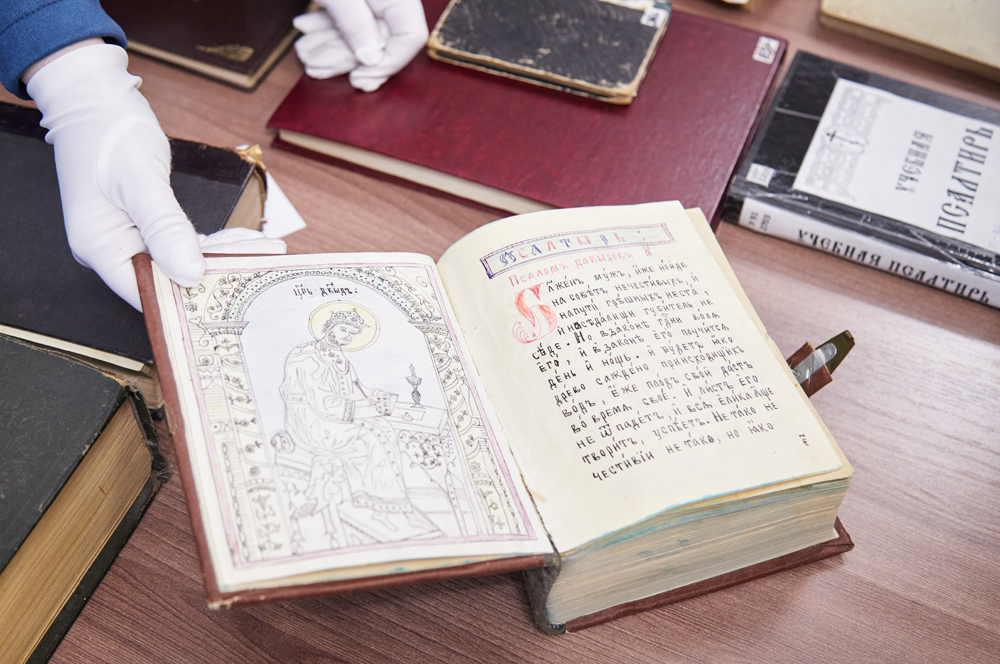 ЦРЬ ДВДЪ:
ПСАЛТЫРЬ
Псаломъ давыдовъ а҃
Блаженъ мꙋжъ, иже неиде
на совѣтъ нечестивыхъ, и
напꙋти грѣшныхъ неста,
и насѣдалищи гꙋбитель не
сѣде. Но в законѣ гдни воля
его, и в законѣ его поꙋчится
день и нощь. и бꙋдетъ ꙗко
древо саждено приисходищихъ
водъ, еже плодъ свой дастъ
во время свое. и листъ его
не ѿпадетъ, и вся елика аще
творитъ, ꙋспѣетъ. Не тако не
честивіи не тако, но ꙗко
УЧЕБНАЯ
ПСАЛТИРЬ
УЧЕБНАЯ ПСАЛТИРЬ